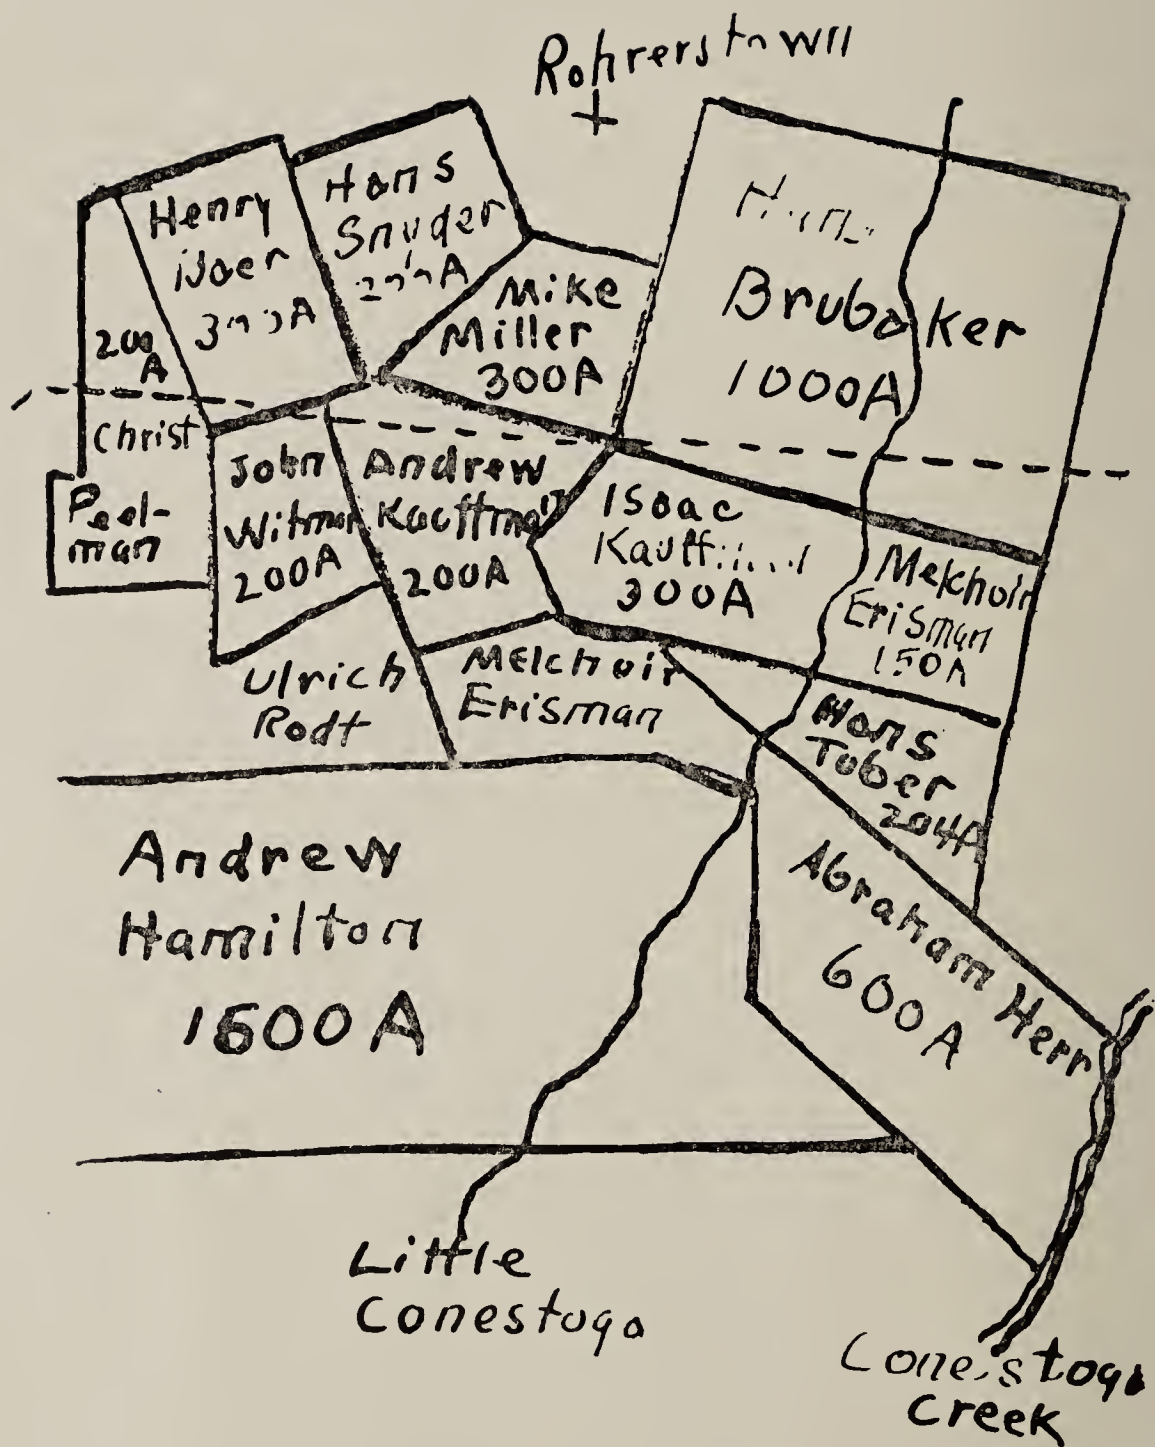 Rohrerstown
Henry
300A
Hans
Snyder
Mike
Miller
300A
Brubaker
1000A
200
A
Christ
Peel-
man
John
Witmer
200A
Andrew
Kauffman
200A
Isaac
300A
Melchoir
Erisman
150A
Ulrich
Rodt
Melchoir
Erisman
Hans
Tober
204A
Andrew
Hamilton
1500A
Abraham Herr
600A
Little
Conestoga
Conestoga
Creek